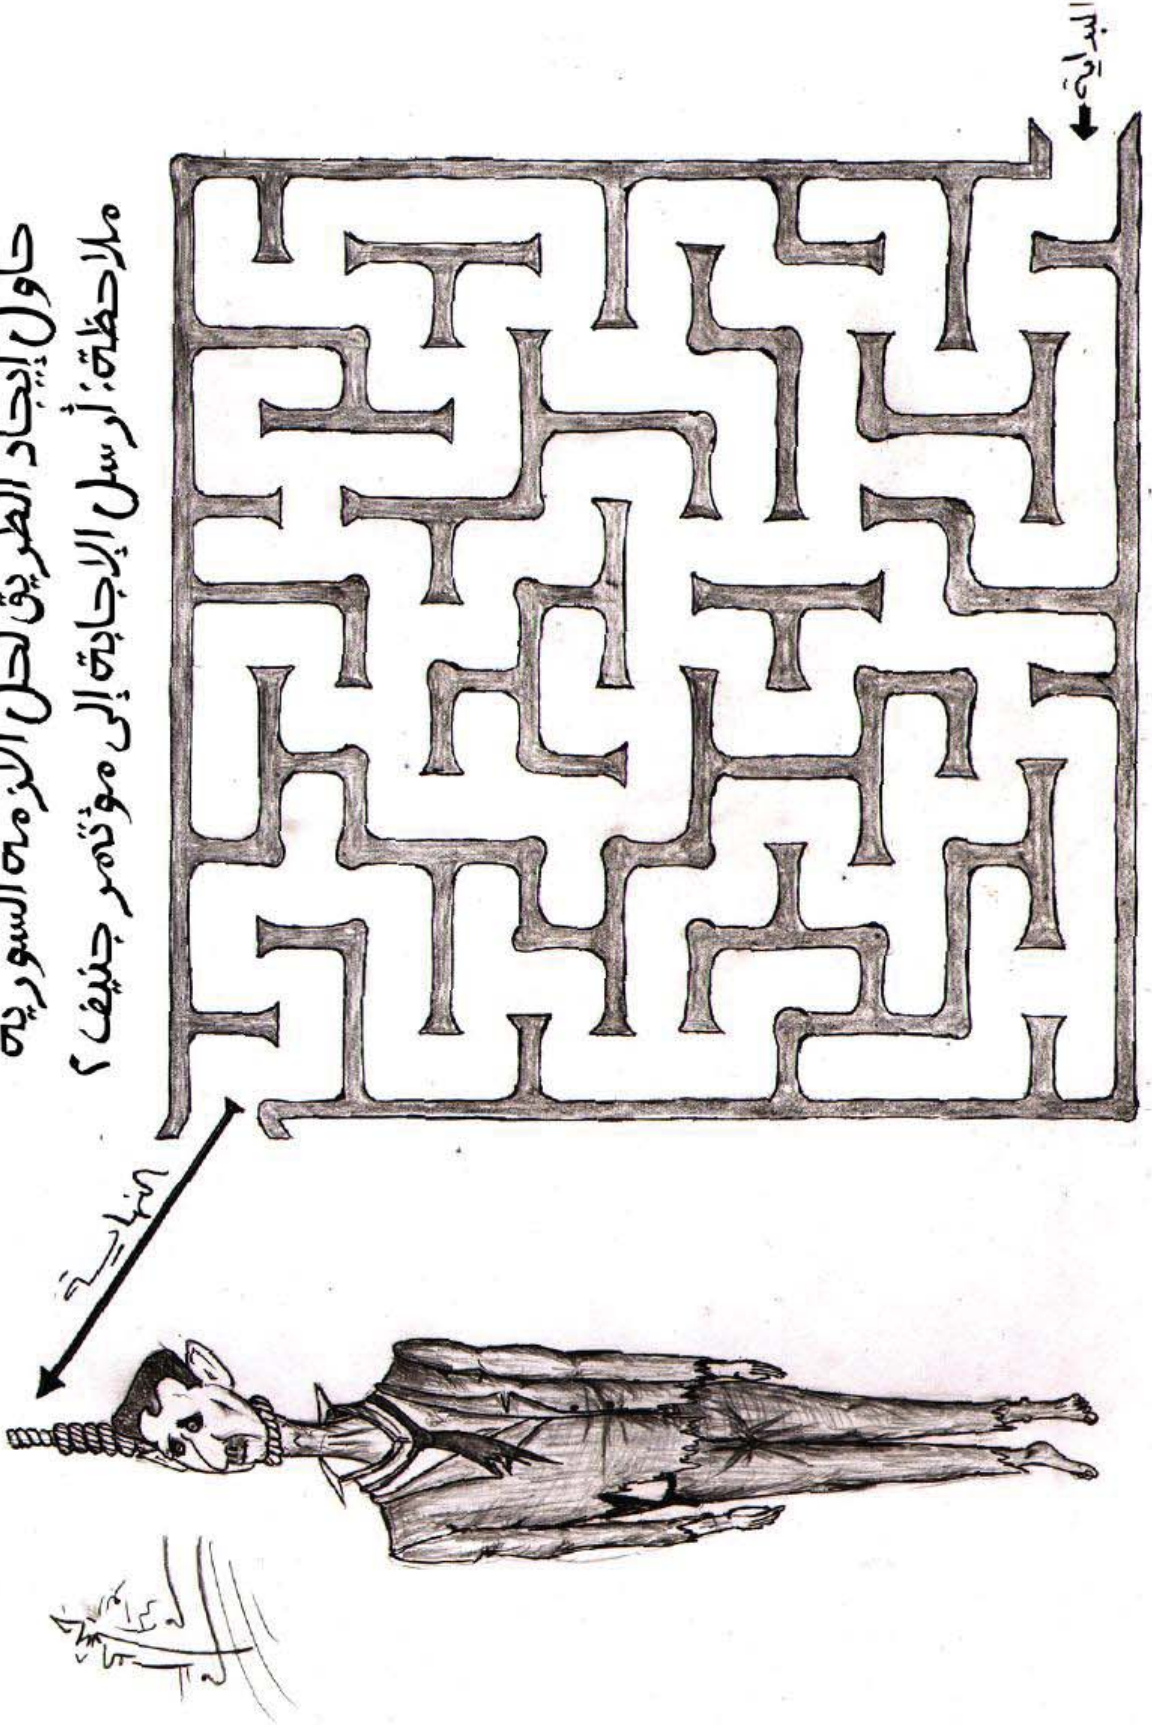 حاول إيجاد الطريق لحل الأزمه السوريه
ملاحظة: أرسل الإجابة إلى مؤتمر جنيف ٢
البداية
النهايـــة